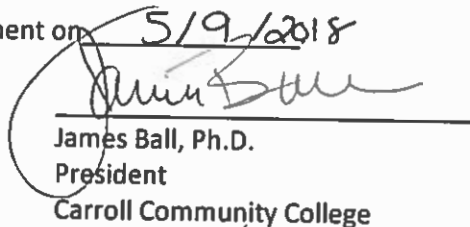 ment on 5/9/2018
James Ball, Ph.D.
President
Carroll Community College